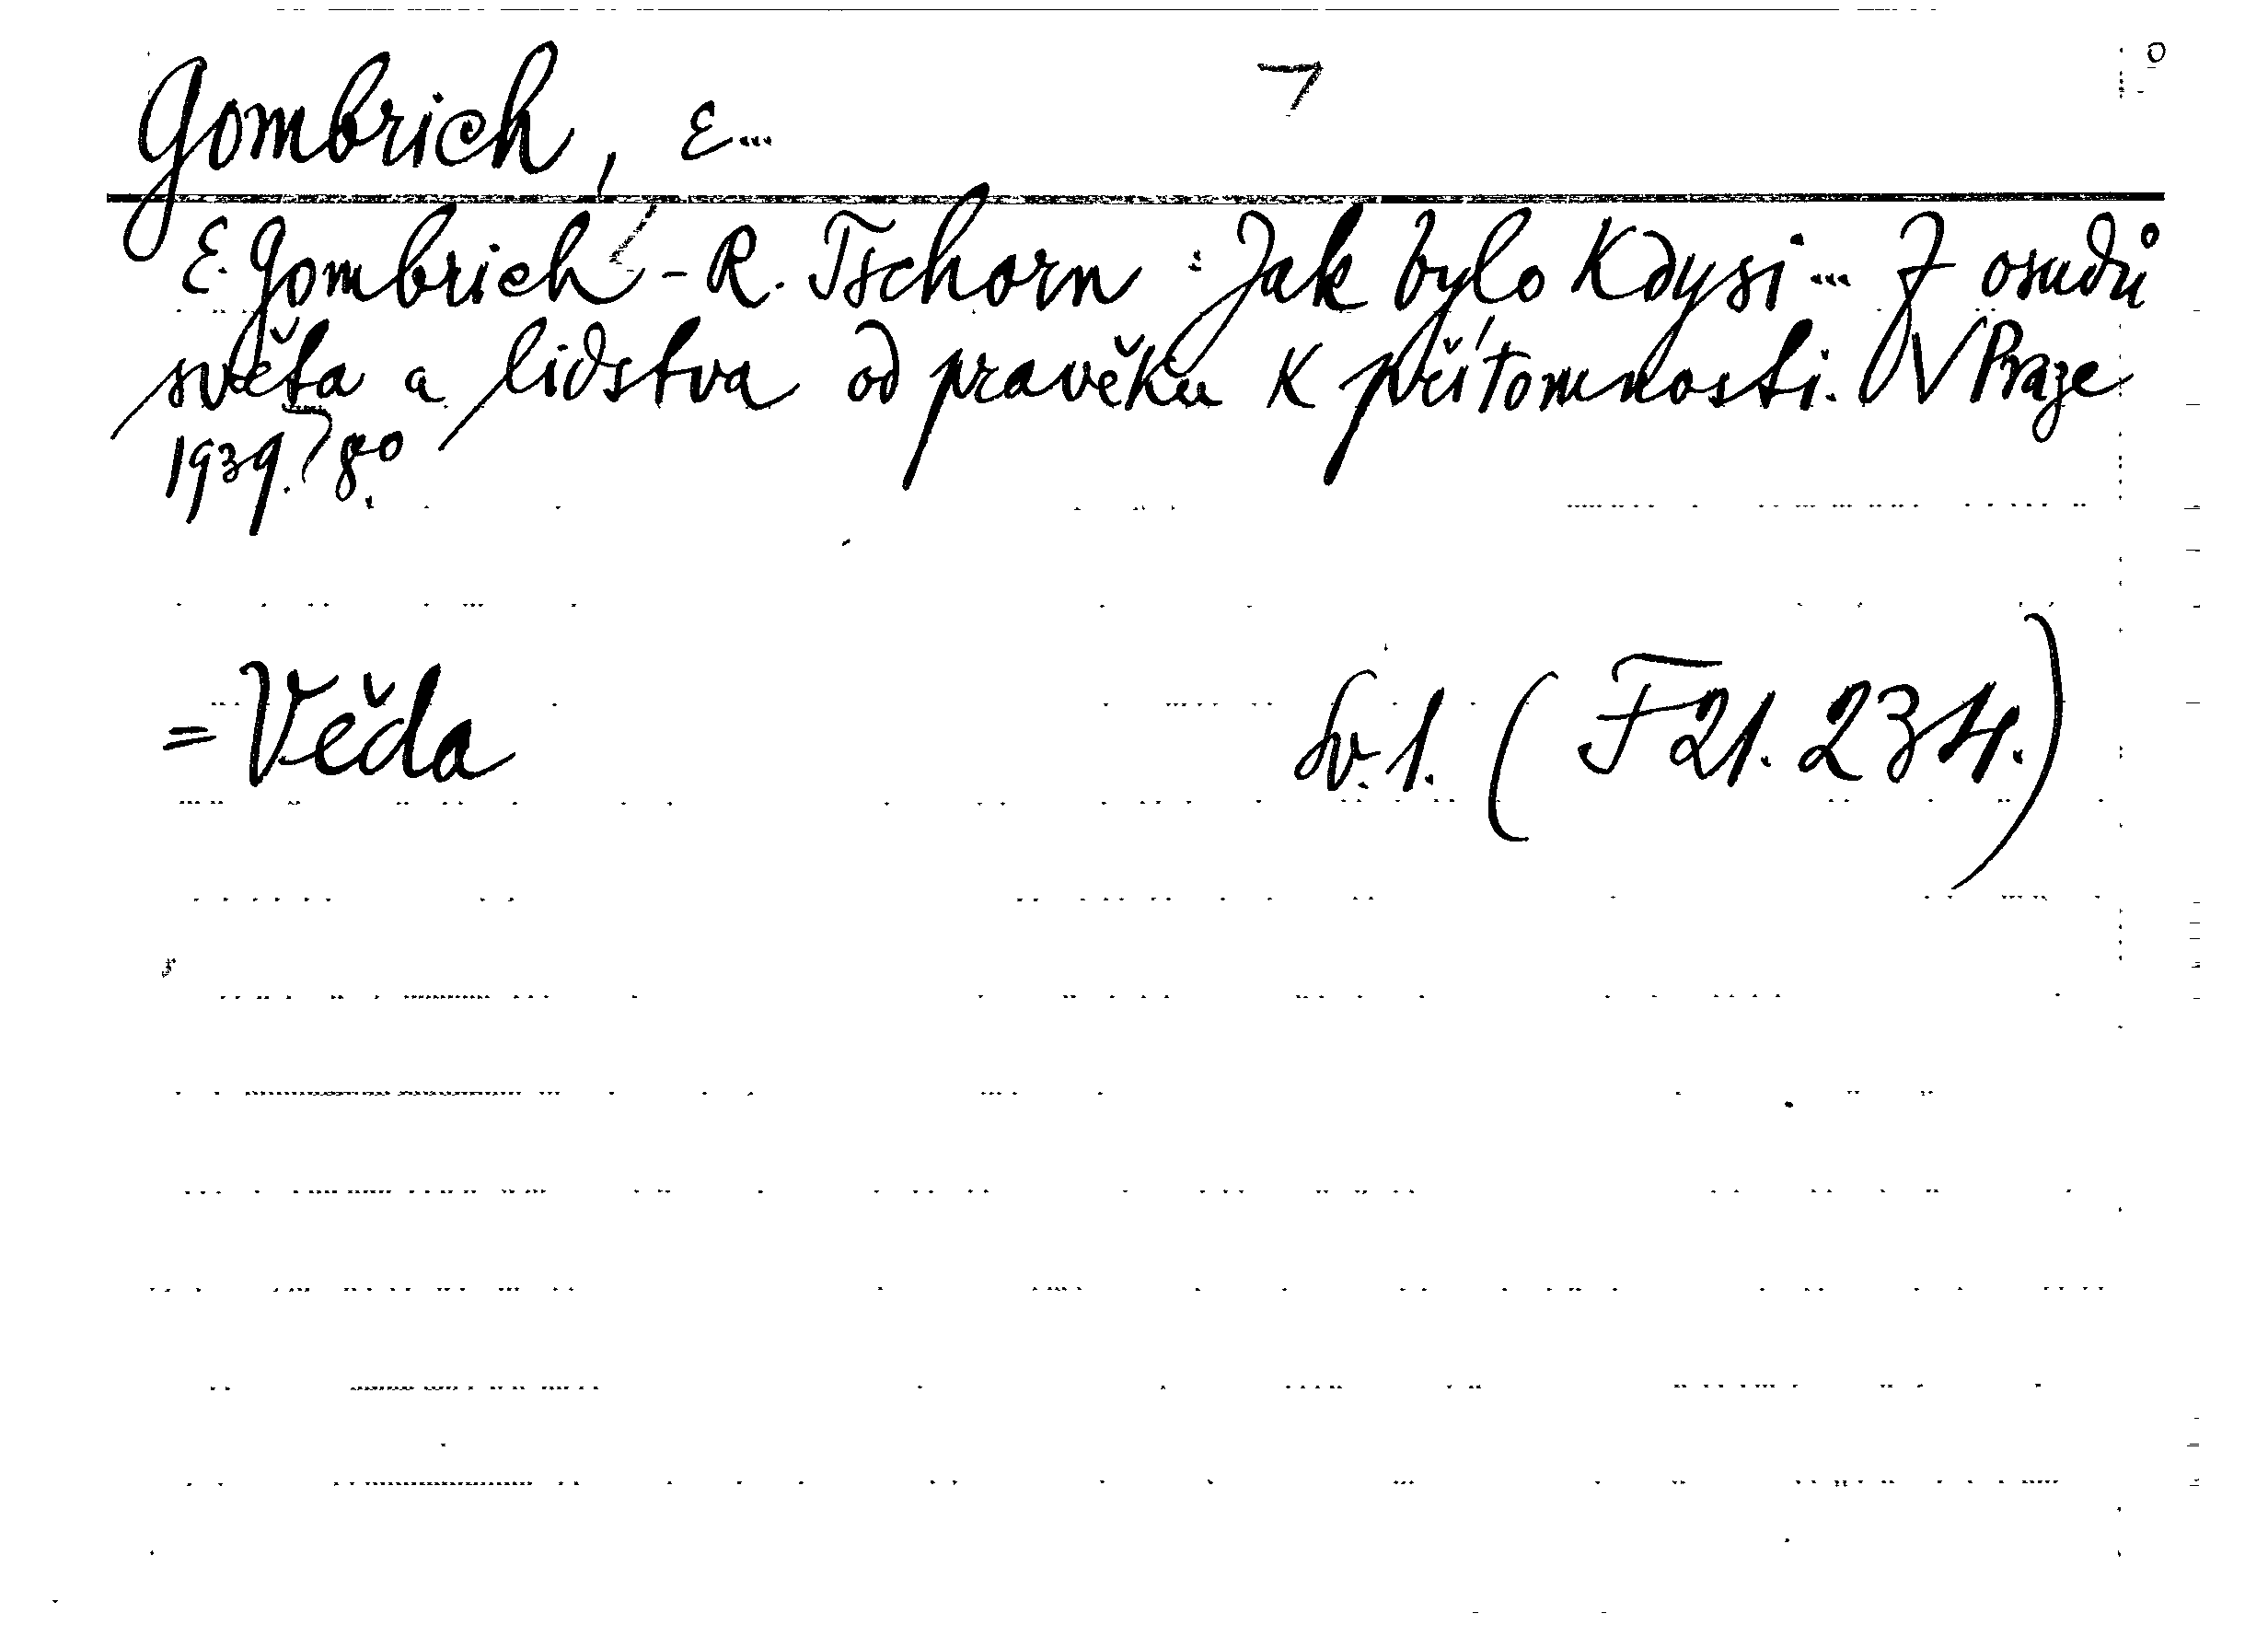 Gombrich, E...
E. Gombrich - R. Tschorn : Jak bylo kdysi ... Z osudů
světa a lidstva od pravěku k přítomnosti. V Praze
1939. 8°.
= Věda Sv. 1. ( F 21. 234. )